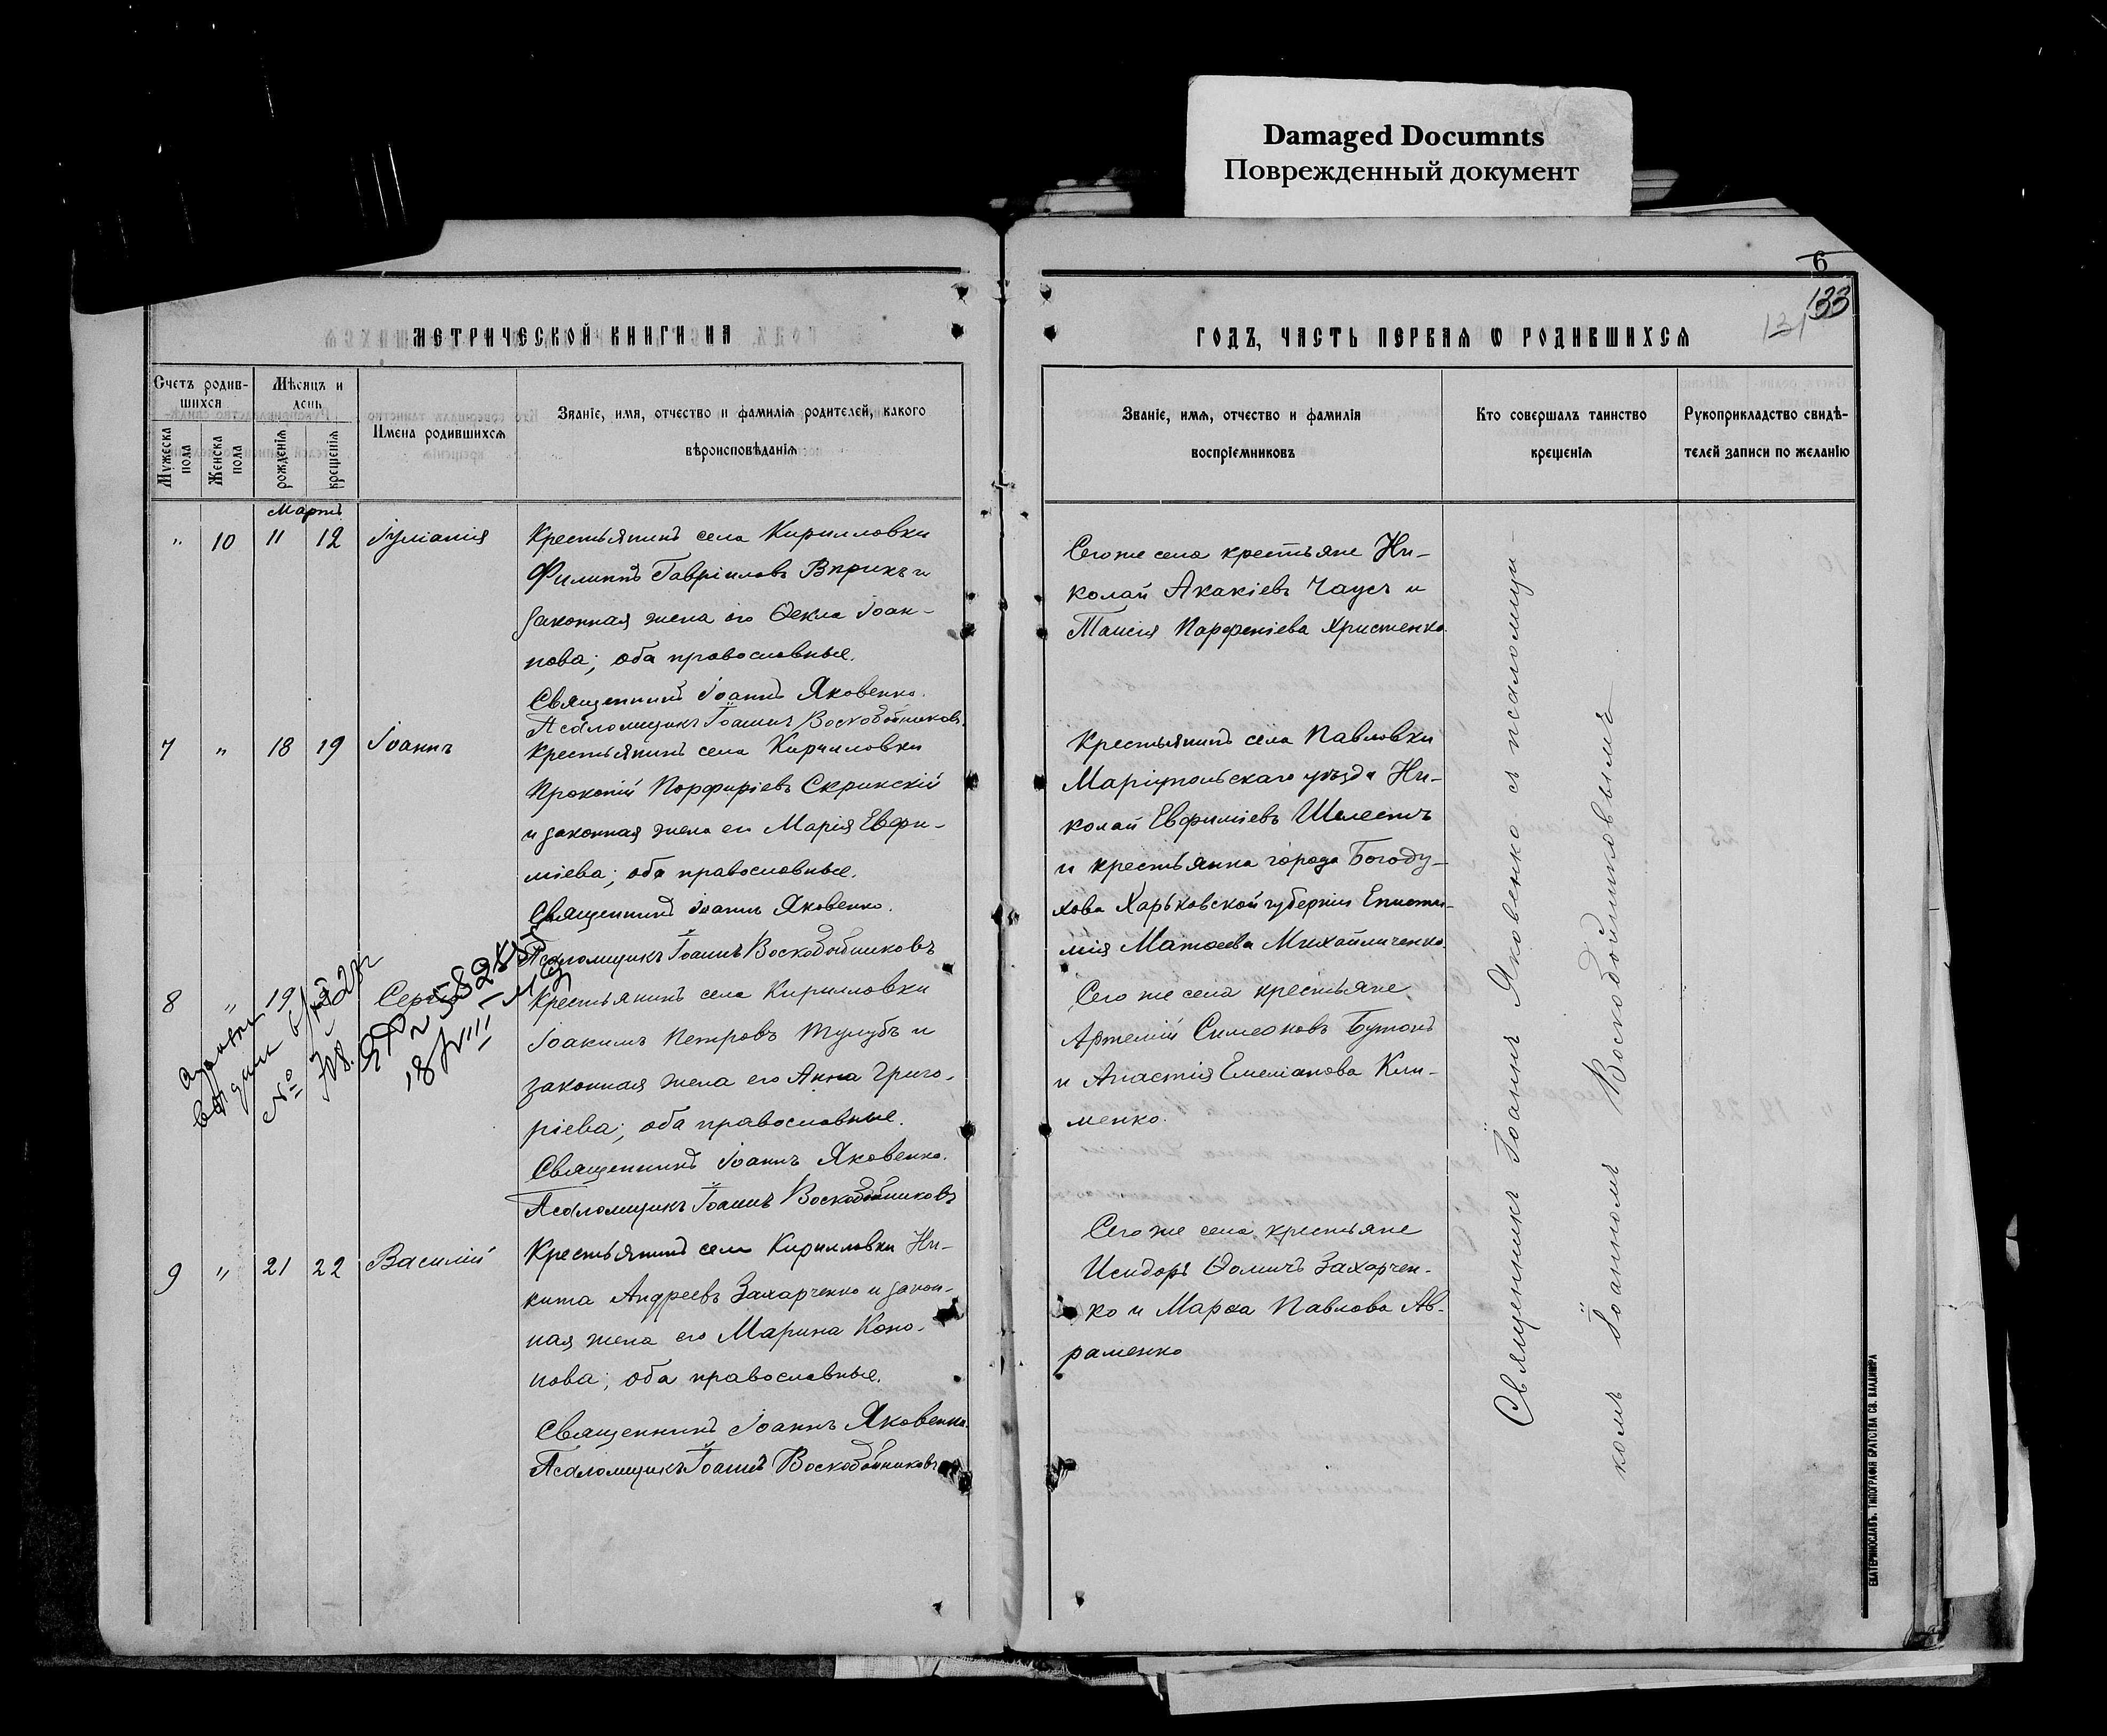 Damaged Documnts
Поврежденный документ
6
133
131
МЕТРИЧЕСКОЙ КНИГИ НА
ГОДЪ, ЧАСТЬ ПЕРВАЯ Ѡ РОДИВШИХСЯ
Счетъ родив-
шихся
Мужеска пола
Женска пола
Мѣсяцъ и
день
рожденія
крещенія
Имена родившихся
Званіе, имя, отчество и фамилія родителей, какого
вѣроисповѣданія
Званіе, имя, отчество и фамилія
воспріемниковъ
Кто совершалъ таинство
крещенія
Рукоприкладство свидѣ-
телей записи по желанію
Мартъ
" 10 11 12 Іуліанія
Крестьянинъ села Кирилловки
Филиппъ Гавріиловъ Вприкъ и
законная жена его Ѳекла Іоан-
нова; оба православные.
Священникъ Іоаннъ Яковенко.
Псаломщикъ Іоаннъ Воскобойниковъ.
Сего же села крестьяне Ни-
колай Акакіевъ Чаусъ и
Таисія Парфеніева Христенко.
7 " 18 19 Іоаннъ
Крестьянинъ села Кирилловки
Прокопій Порфиріевъ Скринскій
и законная жена его Марія Евфи-
міева; оба православные.
Священникъ Іоаннъ Яковенко.
Псаломщикъ Іоаннъ Воскобойниковъ
Крестьянинъ села Павловки
Маріупольскаго уѣзда Ни-
колай Евфиміевъ Шелестъ
и крестьянка города Богоду-
хова Харьковской губерніи Еписти-
мія Матѳеева Михайличенко.
8 " 19 Сергій
Крестьянинъ села Кирилловки
Іоакимъ Петровъ Тулубъ и
законная жена его Анна Григо-
ріева; оба православные.
Священникъ Іоаннъ Яковенко.
Псаломщикъ Іоаннъ Воскобойниковъ
Сего же села крестьяне
Артемій Симеоновъ Бутокъ
и Анастія Емеліанова Кли-
менко.
9 " 21 22 Василій
Крестьянинъ села Кирилловки Ни-
кита Андреевъ Захарченко и закон-
ная жена его Марина Коно-
нова; оба православные.
Священникъ Іоаннъ Яковенко.
Псаломщикъ Іоаннъ Воскобойниковъ
Сего же села крестьяне
Исидоръ Ѳомичъ Захарчен-
ко и Марѳа Павлова Ав-
раменко
Священникъ Іоаннъ Яковенко съ псаломщи-
комъ Іоанномъ Воскобойниковымъ
ЕКАТЕРИНОСЛАВЪ. ТИПОГРАФІЯ БРАТСТВА СВ. ВЛАДИМІРА